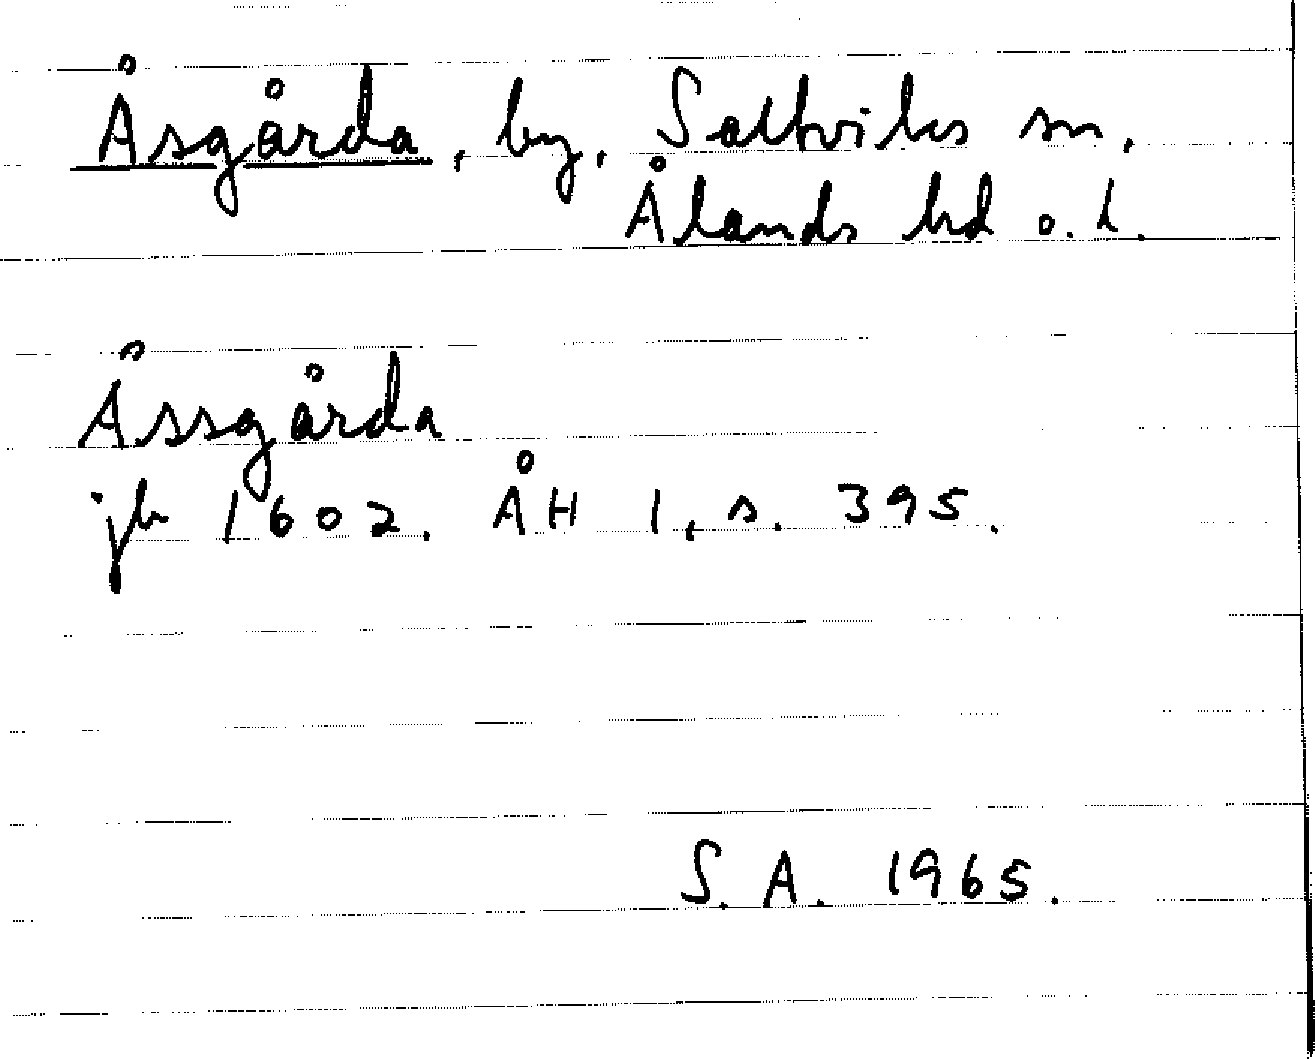 Åsgårda, by, Saltviks sn,
Ålands hd o. l.
Åssgårda
jb 1602. ÅH 1, s. 395.
S. A. 1965.